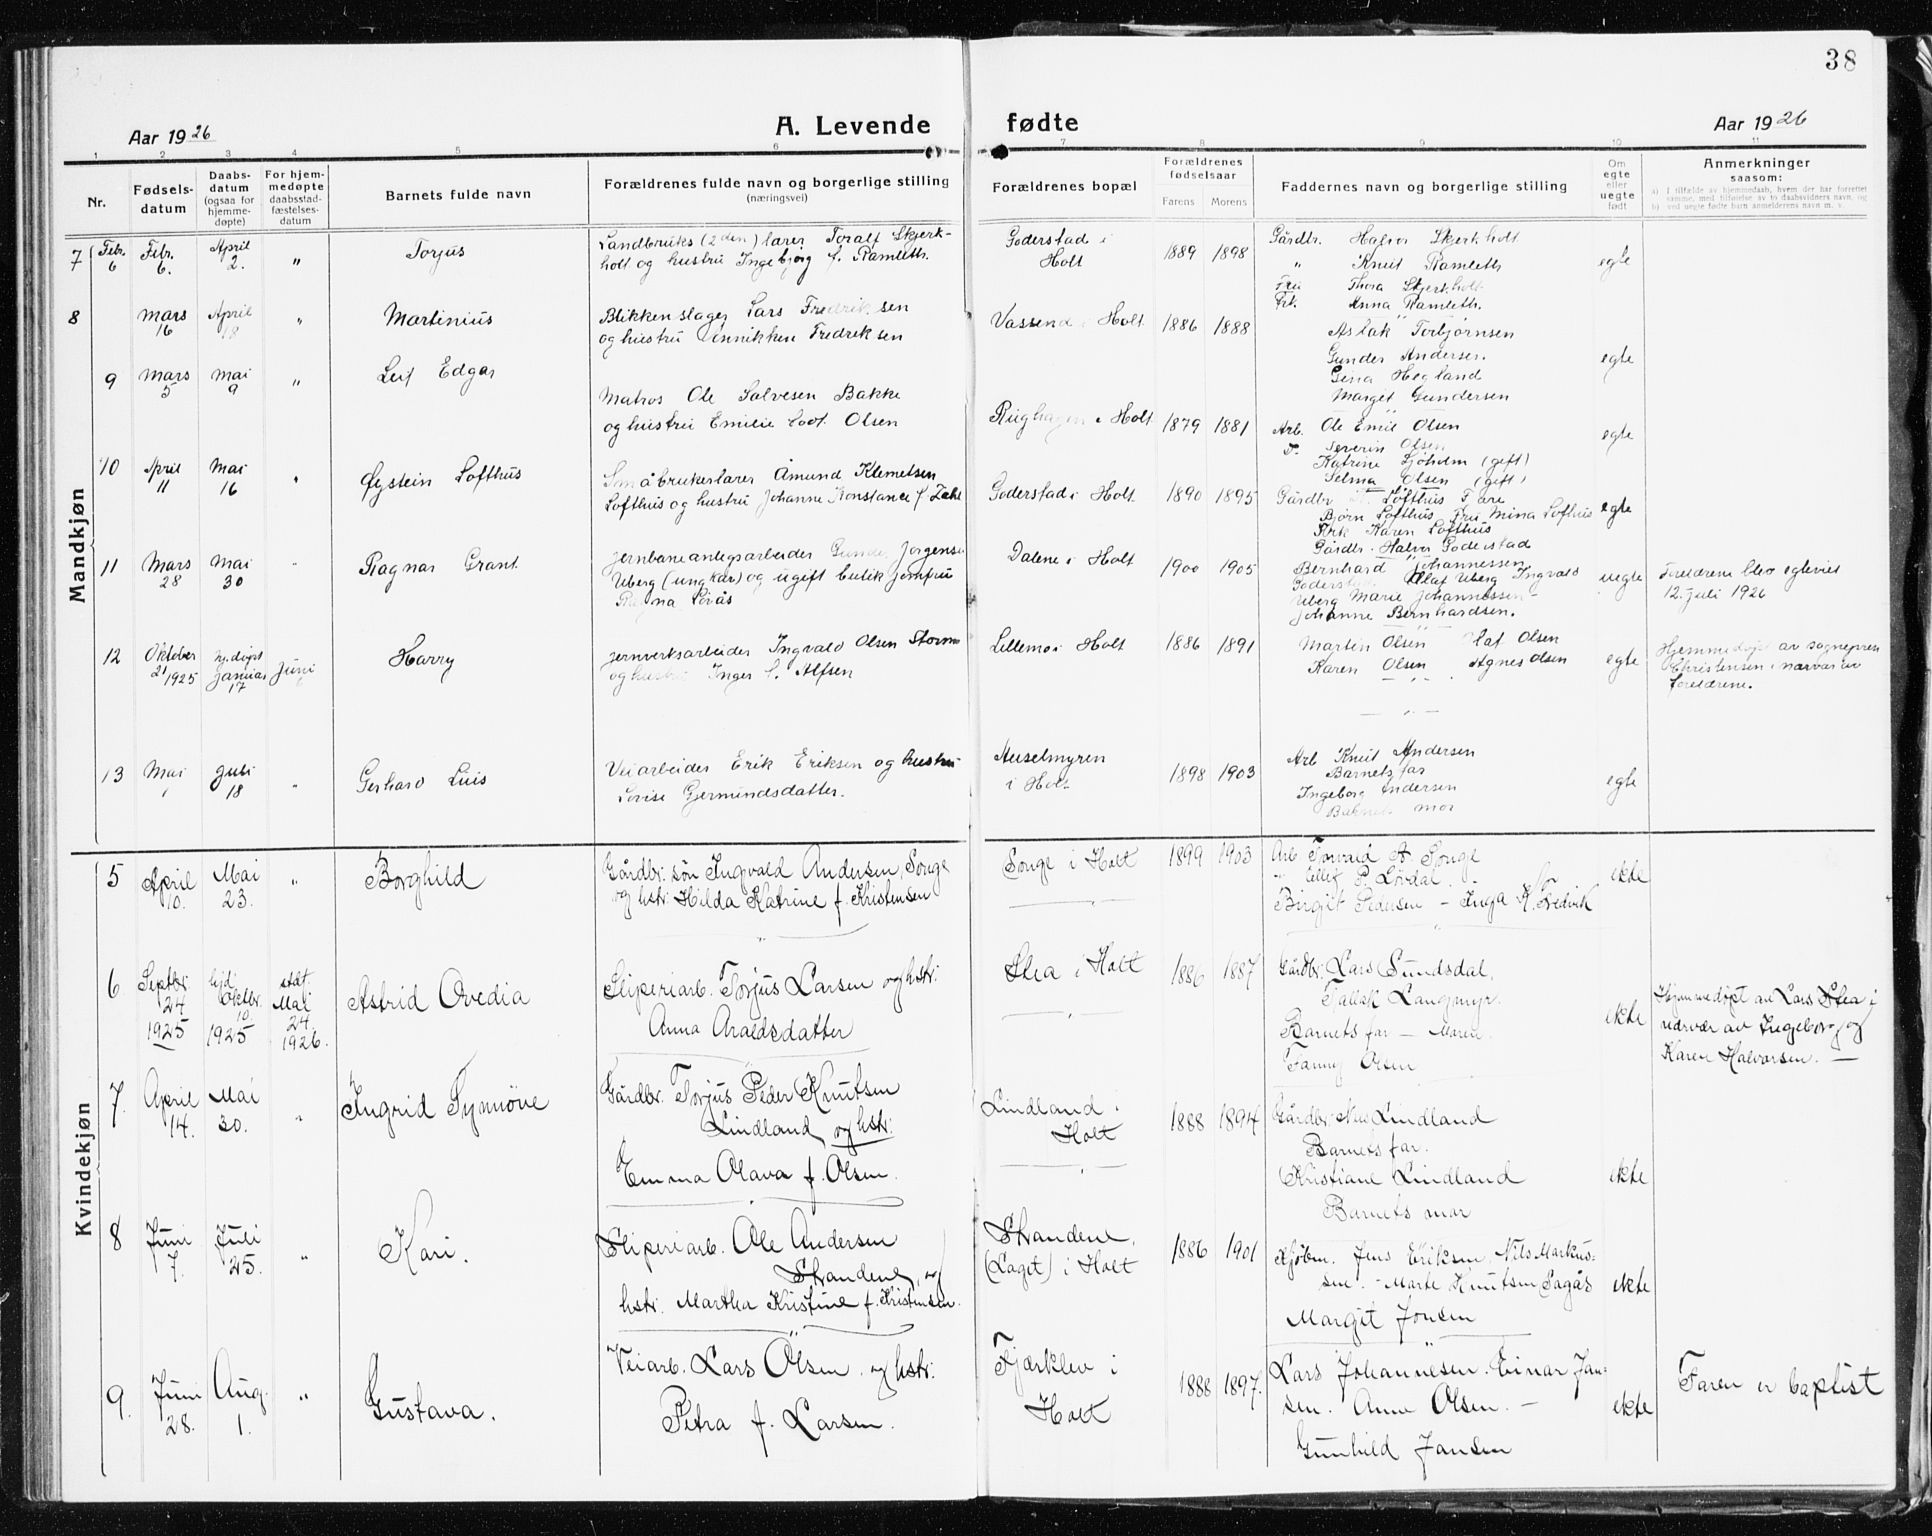 38
Aar 1926
A. Levende fødte
Aar 1926
1 2 3 4 5 6 7 8 9 10 11
Nr.
Fødsels-
datum
Daabs-
datum
(ogsaa for
hjemme-
døpte)
For hjem-
medøpte
daabsstad-
fæstelses-
datum
Barnets fulde navn
Forældrenes fulde navn og borgerlige stilling
(næringsvei)
Forældrenes bopæl
Forældrenes
fødselsaar
Farens Morens
Faddernes navn og borgerlige stilling
Om
egte
eller
uegte
født
Anmerkninger
saasom:
a) I tilfælde av hjemmedaab, hvem der har forrettet
samme, med tilføielse av to daabsvidners navn, og
b) ved uegte fødte barn anmelderens navn m. v.
Mandkjøn
7 Febr. 6 Febr. 6. April 2. "
Torjus
Landbruks (2den) lærer Toralf Skjerk-
holt og hustru Ingebjørg f. Ramleth.
Goderstad i
Holt
1889 1898
Gårdbr. Halvor Skjerkholt
" Knut Ramleth
Fru Thora Skjerkholt
Frk. Anna Ramleth.
egte
8 Mars 16 April 18 "
Martinius
Blikkenslager Lars Fredriksen
og hustru Annikken Fredriksen
Vassend i Holt
1886 1888
Aslak Torbjørnsen
Gunder Andersen
Gina Hegland
Margit Gundersen
egte
9 Mars 5 Mai 9 "
Leif Edgar
Matros Ole Salvesen Bakke
og hustru Emilie Olsen
Rughagen i Holt
1879 1881
Arb. Ole Emil Olsen
Severin Olsen
Katrine Sjøholm (gift)
Selma Olsen (gift)
egte
10 April 11 Mai 16 "
Øystein Lofthus
Småbrukerlærer Åmund Klemetsen
Lofthus og hustru Johanne Konstance f.
Goderstad i Holt
1890 1895
Gårdbr. Lofthus
Bjørn Lofthus Fru Mina Lofthus
Frk Karen Lofthus
Gårdbr. Halvor Goderstad
egte
11 Mars 28 Mai 30 "
Ragnar Grant
Jernbaneanlegsarbeider Jørgens.
Uberg (ungkar) og ugift butikjomfru
Dalene i Holt
1900 1905
Bernhard Johannessen
Goderstad, Olaf Uberg Ingvald
Uberg Marie Johannessen
Johanne Bernhardsen.
uegte
Foreldrene blev egteviet
12. juli 1926
12 Oktober 21 1925 hj.døpt januar 17 Juni
Harry
Jernverksarbeider Ingvald Olsen
og hustru Inger f. Alfsen
Lillemo i Holt
1886 1891
Martin Olsen Olaf Olsen
Karen Olsen Agnes Olsen
egte
Hjemmedøpt av sognepres
Christensen i nærvær av
foreldrene.
13 Mai Juli 18 "
Gerhard Luis
Veiarbeider Erik Eriksen og hustru
Lovise Gjermundsdatter.
Auselmyren
i Holt
1898 1903
Arb Knut Andersen
Barnets far
Ingeborg Andersen
Barnets mor
egte
Kvindekjøn
5 April 10. Mai 23. "
Borghild
Gårdbr. søn Ingvald Andersen Songe
og hstr. Hilda Katrine f. Kristensen
Songe i Holt
1899 1903
Arb. Torvald A. Songe
" Ellef P. Løvdal.
Birgit Pedersen – Inga K. Fredvik
ekte
6 Septbr. 24 1925 hjd. Oktbr. 10 1925 stat. Mai 24 1926.
Astrid Ovedia
Sliperiarb. Torjus Larsen og hstr.
Anna Araldsdatter
Stea i Holt
1886 1887
Gårdbr. Lars Sundsdal,
Langmyr.
Barnets far – Maren
Fanny Olsen
ekte
Hjemmedøpt av Lars Stea i
nærvær av Ingeborg og
Karen Halvorsen. —
7. April 14. Mai 30. "
Ingrid Synnøve
Gårdbr. Torjus Peder Knutsen
Lindland og hstr:
Emma Olava f. Olsen.
Lindland i
Holt
1888 1894
Gårdbr. Lindland
Barnets far.
Kristiane Lindland
Barnets mor
ekte
8 Juni 7. Juli 25. "
Kari.
Sliperiarb. Ole Andersen
Strandene, og
hstr. Martha Kristine f. Kristensen.
Strandene,
(Laget) i Holt
1886 1901
Kjøbm. Jens Eriksen, Nils Markus-
sen. – Marte Knutsen Sagås
Margit Jonsen
ekte
9. Juni 28. Aug. 1. "
Gustava.
Veiarb. Lars Olsen og hstr:
Petra f. Larsen.
Fjærkleiv i
Holt
1888 1897.
Lars Johannesen. Einar Jan-
sen. Anna Olsen. –
Gunhild Jansen
ekte
Faren er baptist